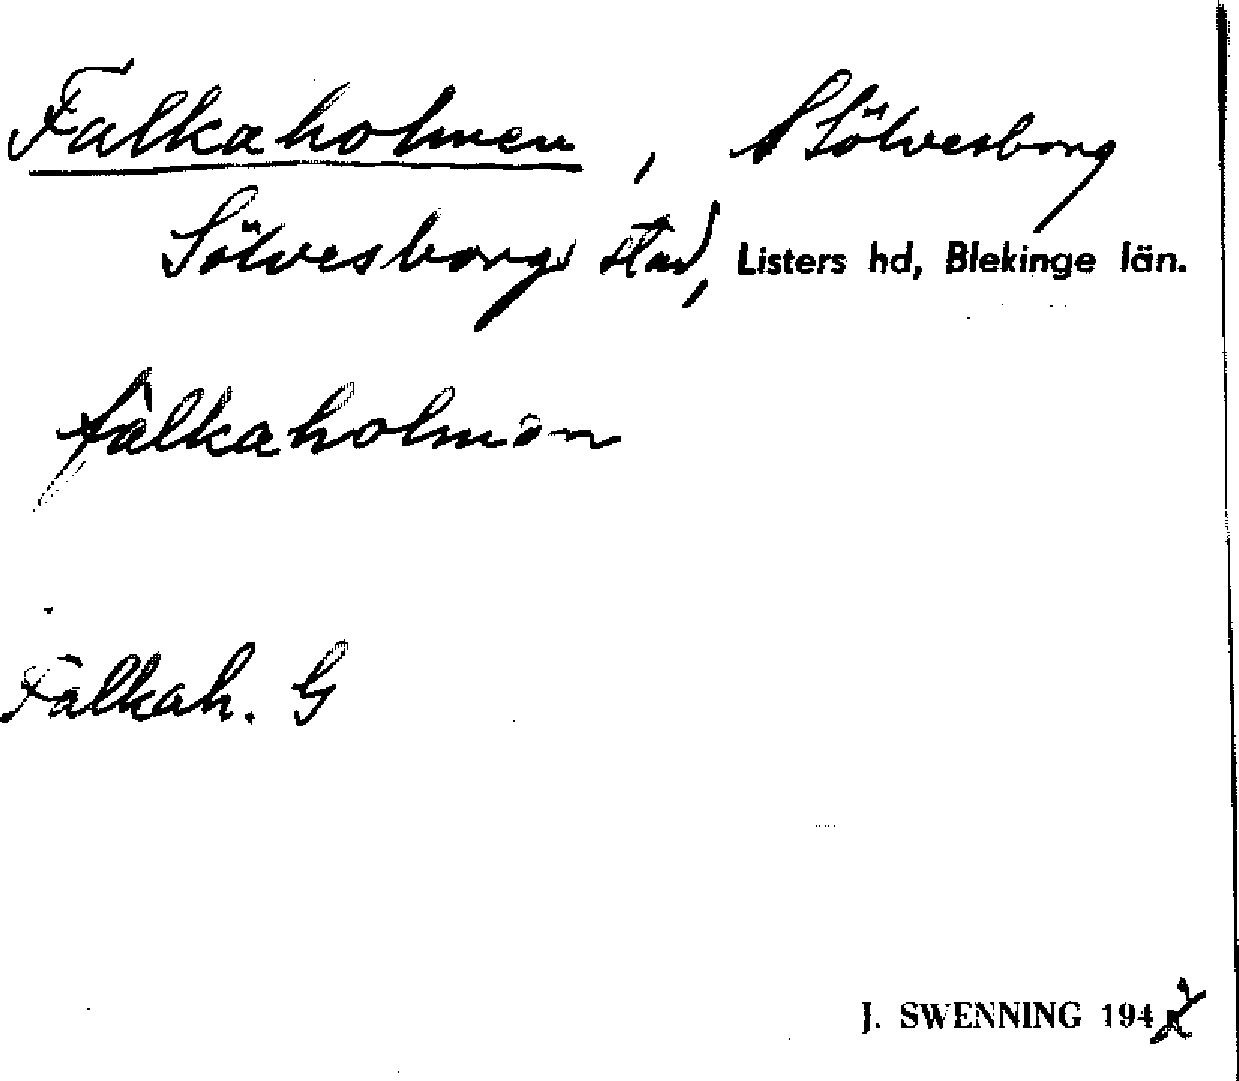 Falkaholmen, Sölvesborg
Sölvesborgs stad, Listers hd, Blekinge län.
fàlkaholmən
Falkah. G
J. SWENNING 194